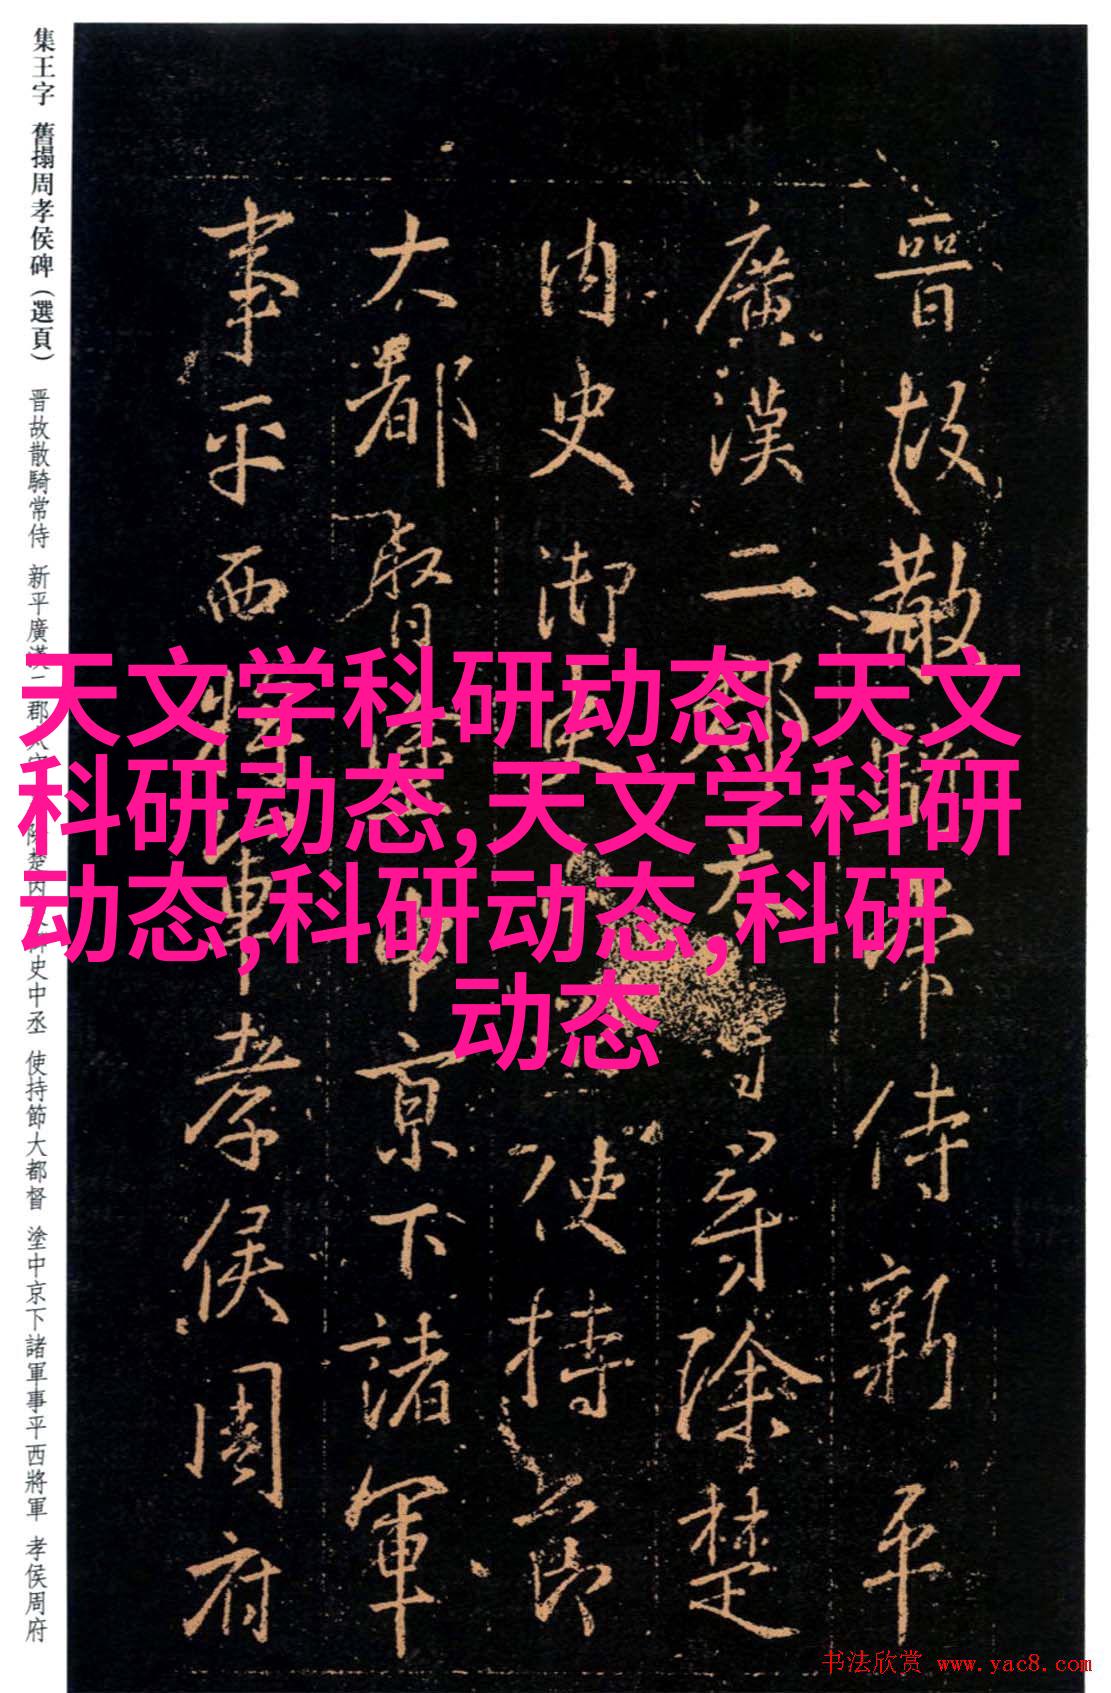 晉故散騎常侍新平
廣漢二郡太守尋除楚
內史御史使持節
大都督塗中京下諸軍
事平西將軍孝侯周府
集王字 舊搨周孝侯碑（選頁） 晋故散騎常侍 新平廣漢二郡 除楚內史中丞 使持節大都督 塗中京下諸軍事平西將軍 孝侯周府
天文学科研动态,天文
科研动态,天文学科研
动态,科研动态,科研
动态
书法欣赏 www.yac8.com